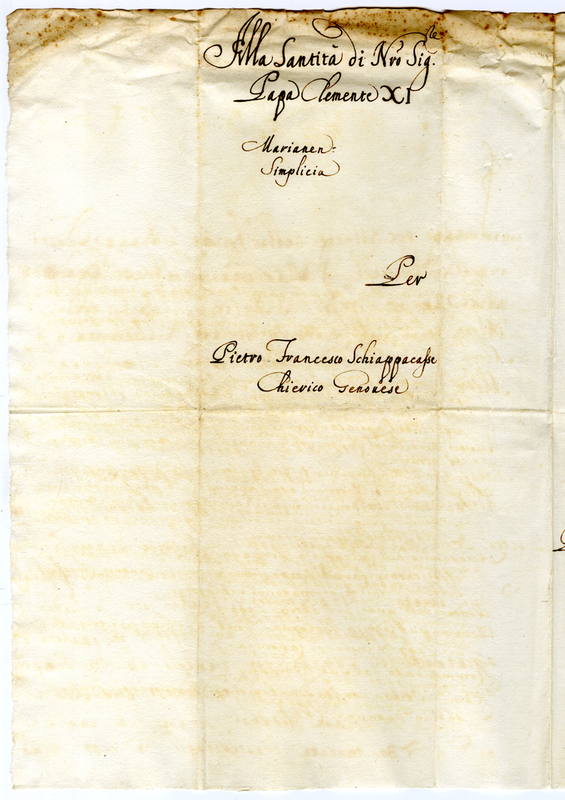 Alla Santità di Nro Sig.re
Papa Clemente XI
Marianen:
Simplicia
Per
Pietro Francesco Schiappacasse
Chierico Genovese